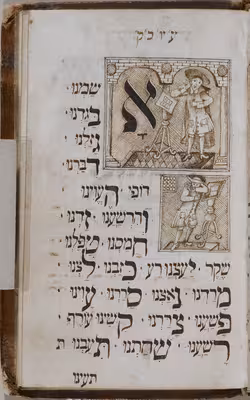 א שמנו
בגדנו ·
גזלנו ·
דברנו
דופי · העוינו
והרשענו · זדנו
חמסנו · טפלנו
שקר · יעצנו רע · כזבנו · לצנו
מרדנו · ניאצנו · סררנו · עוינו
פשענו · צררנו · קשינו ערף ·
רשענו · שחתנו · תעבנו ת
תעינו